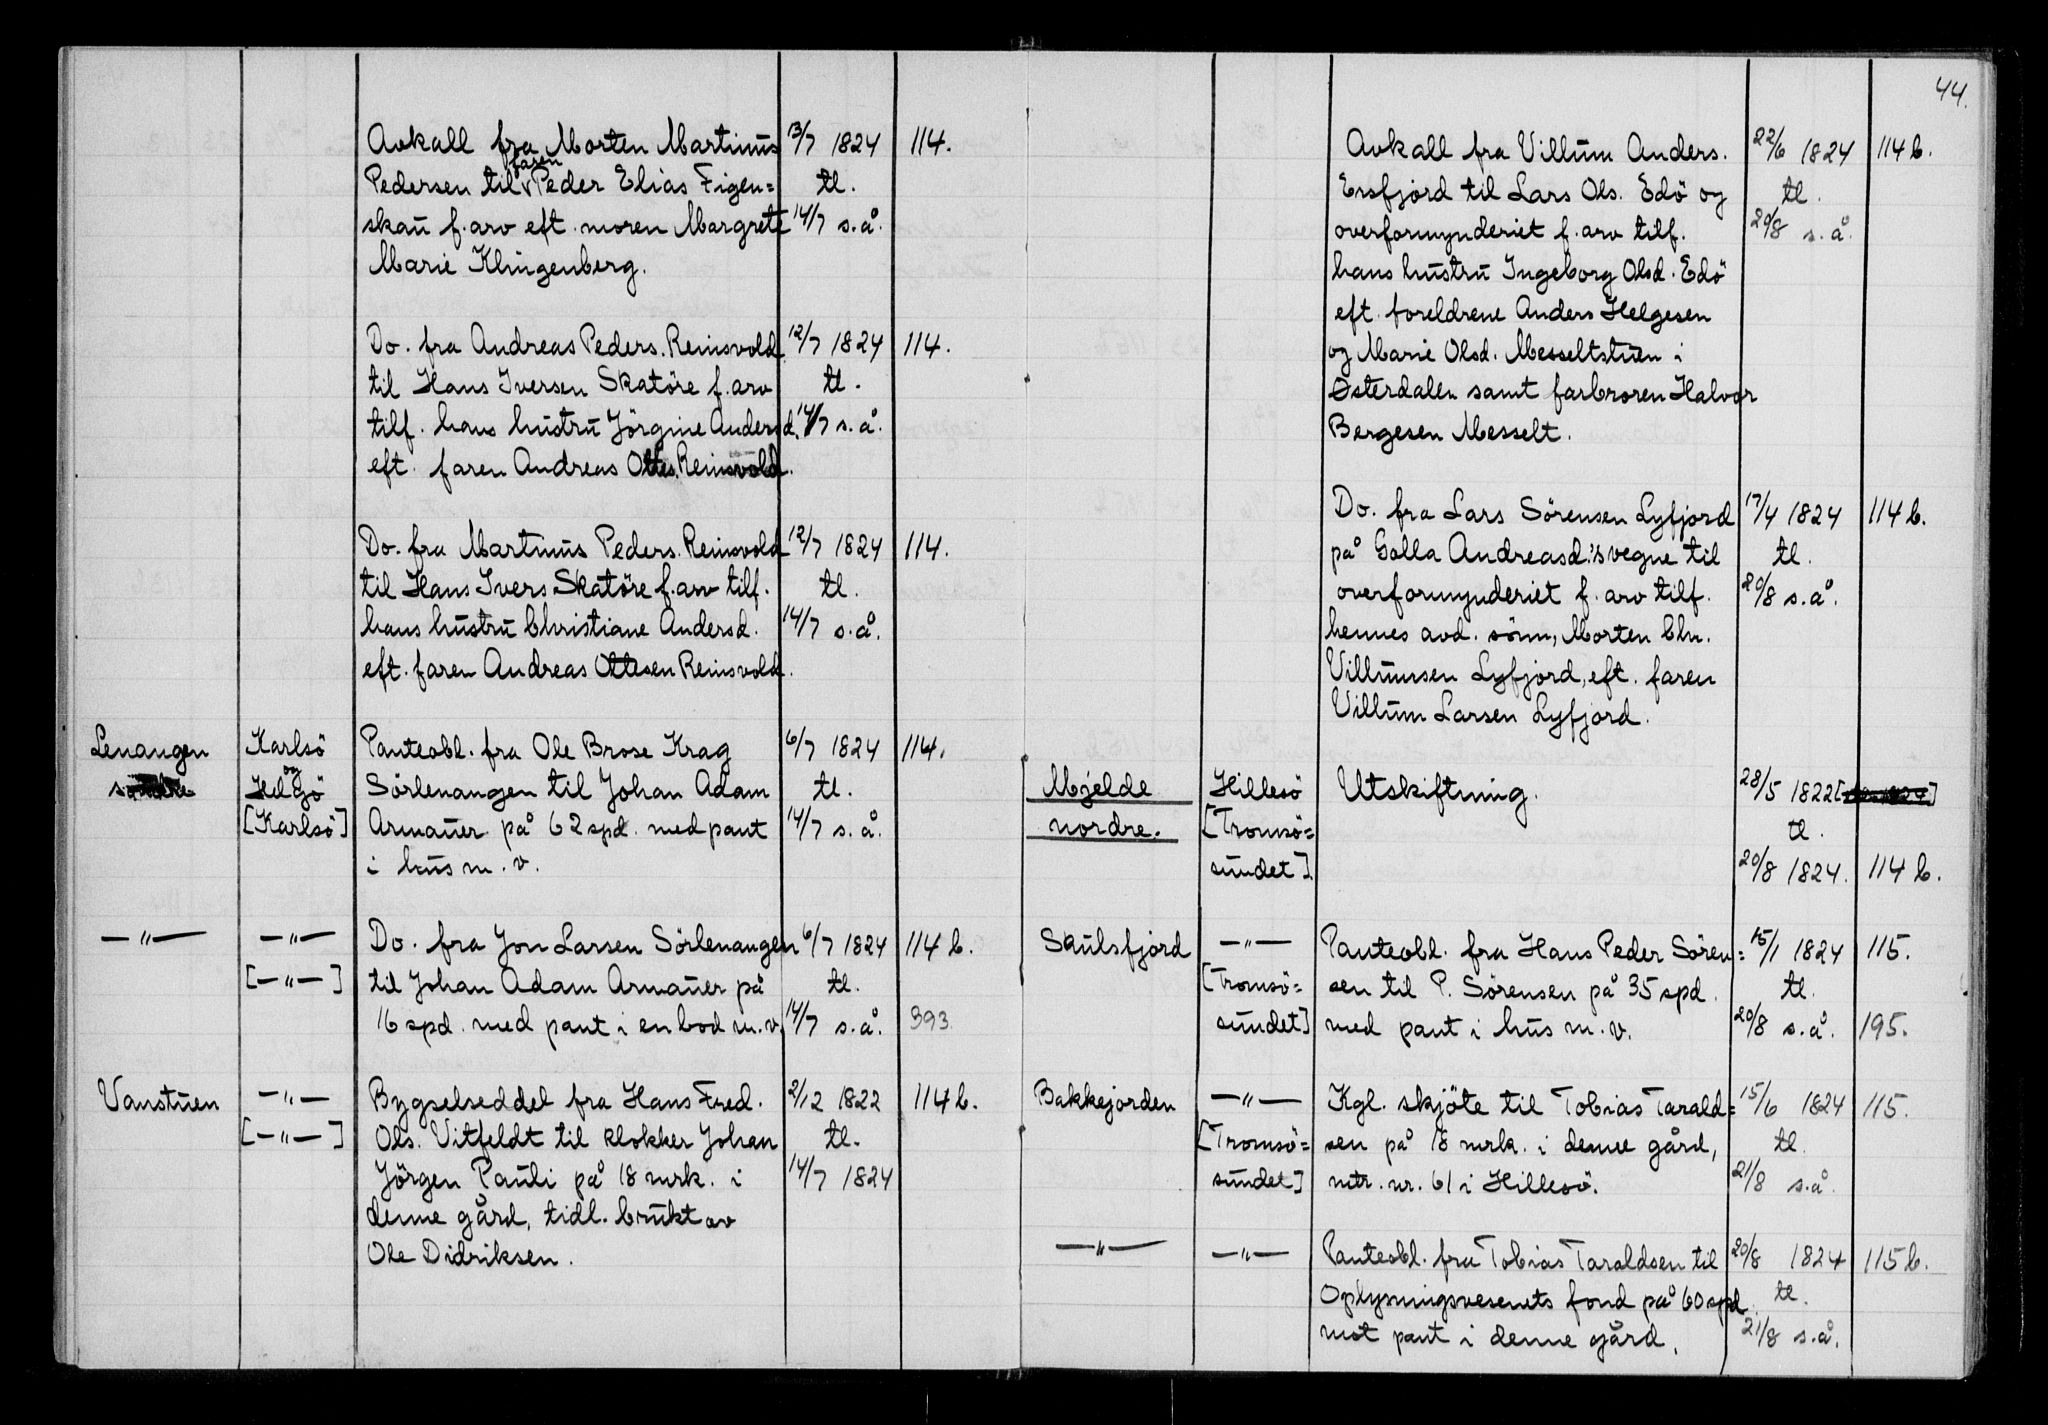 44.
Avkall fra Morten Martinus 13/7 1824 114.
faren
Pedersen til Peder Elias Figen= tl.
skau f. arv eft. moren Margrete 14/7 s.å.
Marie Klingenberg.
Do. fra Andreas Peders. Reinsvold 12/7 1824 114.
til Hans Iversen Skatöre f. arv tl.
tilf. hans hustru Jörgine Andersd. 14/7 s.å.
eft. faren Andreas Ottes. Reinsvold.
Do. fra Martinus Peders. Reinsvold 12/7 1824 114.
til Hans Ivers. Skatöre f. arv tilf. tl.
hans hustru Christiane Andersd. 14/7 s.å.
eft. faren Andreas Ottesen Reinsvold.
Lenangen Karlsö Panteobl. fra Ole Brose Krag 6/7 1824 114.
og
Helgö Sörlenangen til Johan Adam tl.
[Karlsö] Armauer på 62 spd. med pant 14/7 s.å.
i hus m. v.
—"— —"— Do. fra Jon Larsen Sörlenangen 6/7 1824 114 b.
[—"—] til Johan Adam Armauer på tl.
16 spd. med pant i en bod m.v. 14/7 s.å. 393
Vanstuen —"— Bygselseddel fra Hans Fred. 2/12 1822 114 b.
[—"—] Ols. Vitfeldt til klokker Johan tl.
Jörgen Pauli på 18 mrk. i 14/7 1824
denne gård, tidl. brukt av
Ole Didriksen.
Avkall fra Villum Anders. 22/6 1824 114 b.
Ersfjord til Lars Ols. Edö og tl.
overformynderiet f. arv tilf. 20/8 s.å.
hans hustru Ingeborg Olsd. Edö
eft. foreldrene Anders Helgesen
og Marie Olsd. Messeltstuen i
Österdalen samt farbroren Halvor
Bergesen Messelt.
Do. fra Lars Sörensen Lyfjord 17/4 1824 114 b.
på Golla Andreasd.'s vegne til tl.
overformynderiet f. arv tilf. 20/8 s.å.
hennes avd. sönn, Morten Chr.
Villumsen Lyfjord, eft. faren
Villum Larsen Lyfjord.
Mjelde Hillesö Utskiftning. 28/5 1822
nordre. [Tromsö= tl.
sundet]. 20/8 1824. 114 b.
Skulsfjord —"— Panteobl. fra Hans Peder Sören= 15/1 1824 115.
[Tromsö= sen til P. Sörensen på 35 spd. tl.
sundet] med pant i hus m. v. 20/8 s.å. 195.
Bakkejorden —"— Kgl. skjöte til Tobias Tarald= 15/6 1824 115.
[Tromsö= sen på 18 mrk. i denne gård, tl.
sundet] mtr. nr. 61 i Hillesö. 21/8 s.å.
—"— —"— Panteobl. fra Tobias Taraldsen til 20/8 1824 115 b.
Oplysningsvesenets fond på 60 spd. tl.
mot pant i denne gård. 21/8 s.å.